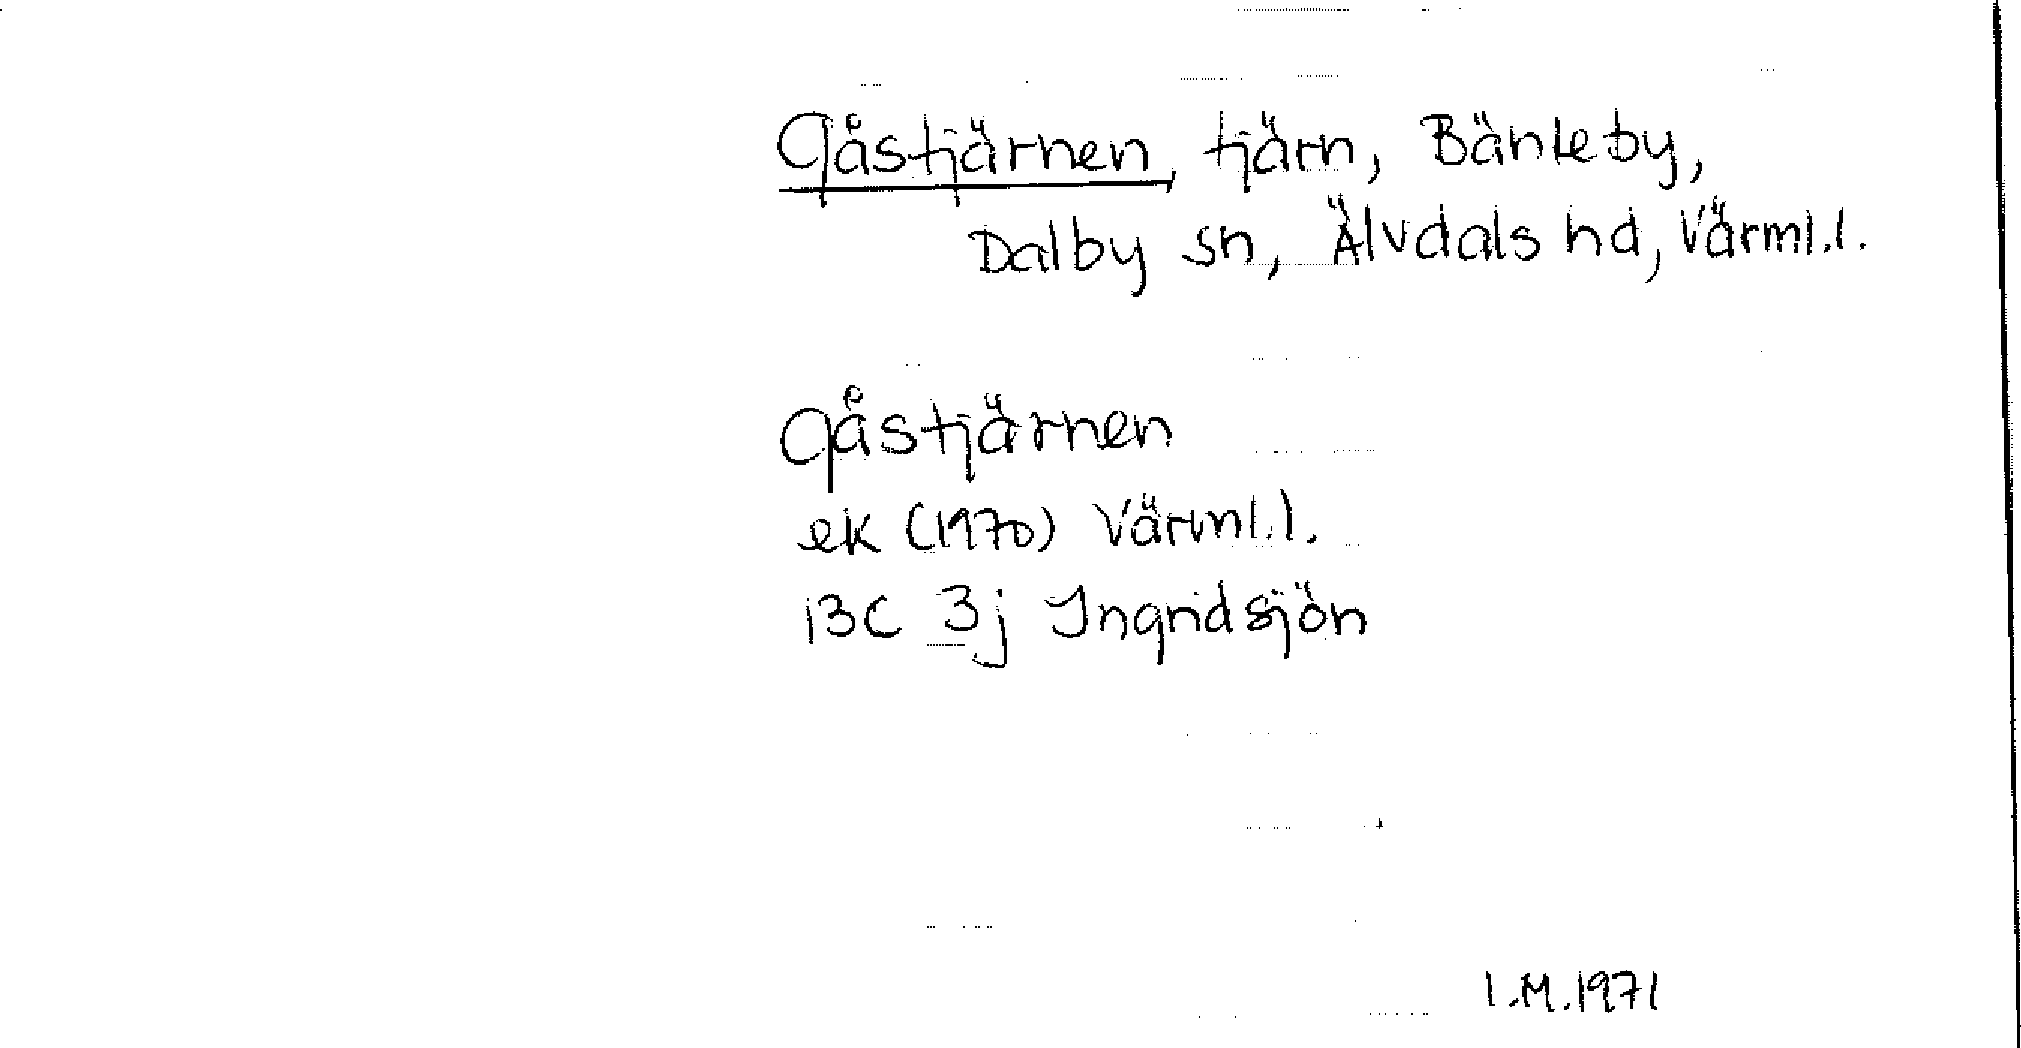 Gåstjärnen, tjärn, Bänteby,
Dalby sn, Älvdals hd, Värml.l.
Gåstjärnen
ek (1970) Värml.l.
13C 3j Ingridsjön
I.M.1971